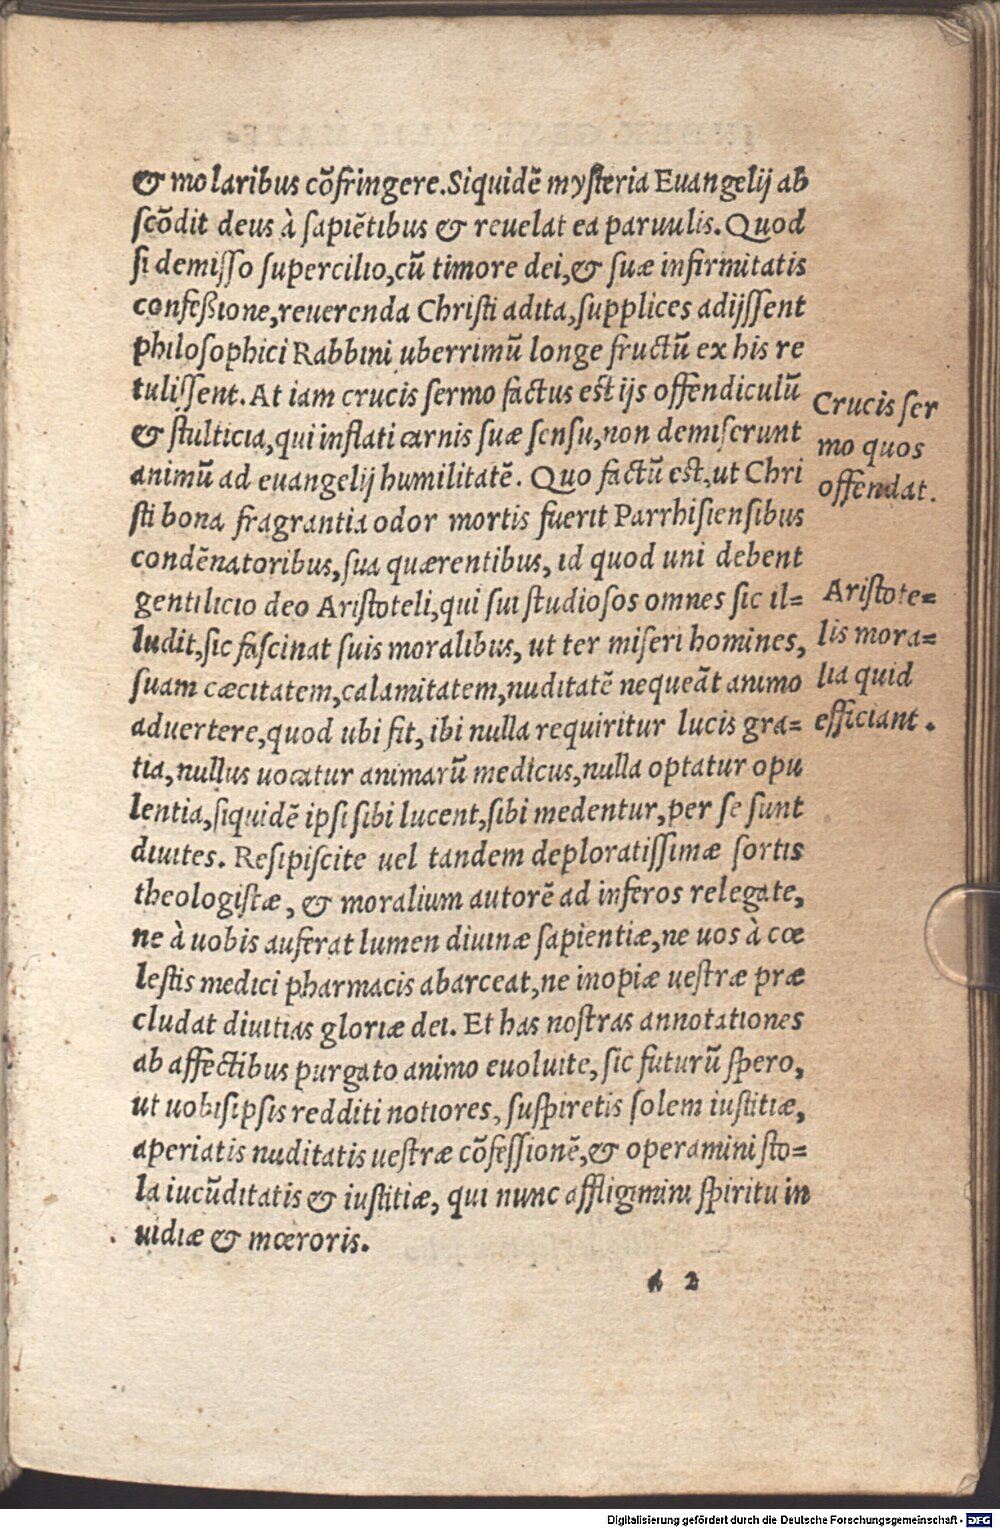 & molaribus cõfringere. Siquidẽ mysteria Euangelij ab
scõdit deus à sapiẽtibus & reuelat ea paruulis. Quod
si demisso supercilio, cũ timore dei, & suæ infirmitatis
confeßione, reuerenda Christi adita, supplices adijssent
philosophici Rabbini uberrimũ longe fructũ ex his re
tulissent. At iam crucis sermo factus est ijs offendiculũ
& stulticia, qui inflati carnis suæ sensu, non demiserunt
animũ ad euangelij humilitatẽ. Quo factũ est, ut Chri
sti bona fragrantia odor mortis fuerit Parrhisiensibus
condẽnatoribus, sua quærentibus, id quod uni debent
gentilicio deo Aristoteli, qui sui studiosos omnes sic il=
ludit, sic fascinat suis moralibus, ut ter miseri homines,
suam cæcitatem, calamitatem, nuditatẽ nequeãt animo
aduertere, quod ubi fit, ibi nulla requiritur lucis gra=
tia, nullus uocatur animarũ medicus, nulla optatur opu
lentia, siquidẽ ipsi sibi lucent, sibi medentur, per se sunt
diuites. Resipiscite uel tandem deploratissimæ sortis
theologistæ, & moralium autorẽ ad inferos relegate,
ne à uobis auferat lumen diuinæ sapientiæ, ne uos à cœ
lestis medici pharmacis abarceat, ne inopiæ uestræ præ
cludat diuitias gloriæ dei. Et has nostras annotationes
ab affectibus purgato animo euoluite, sic futurũ spero,
ut uobisipsis redditi notiores, suspiretis solem iustitiæ,
aperiatis nuditatis uestræ cõfessionẽ, & operamini sto=
la iucũditatis & iustitiæ, qui nunc affligimini spiritu in
uidiæ & mœroris.
A 2
Crucis ser
mo quos
offendat.
Aristote=
lis mora=
lia quid
efficiant.
Digitalisierung gefördert durch die Deutsche Forschungsgemeinschaft - DFG